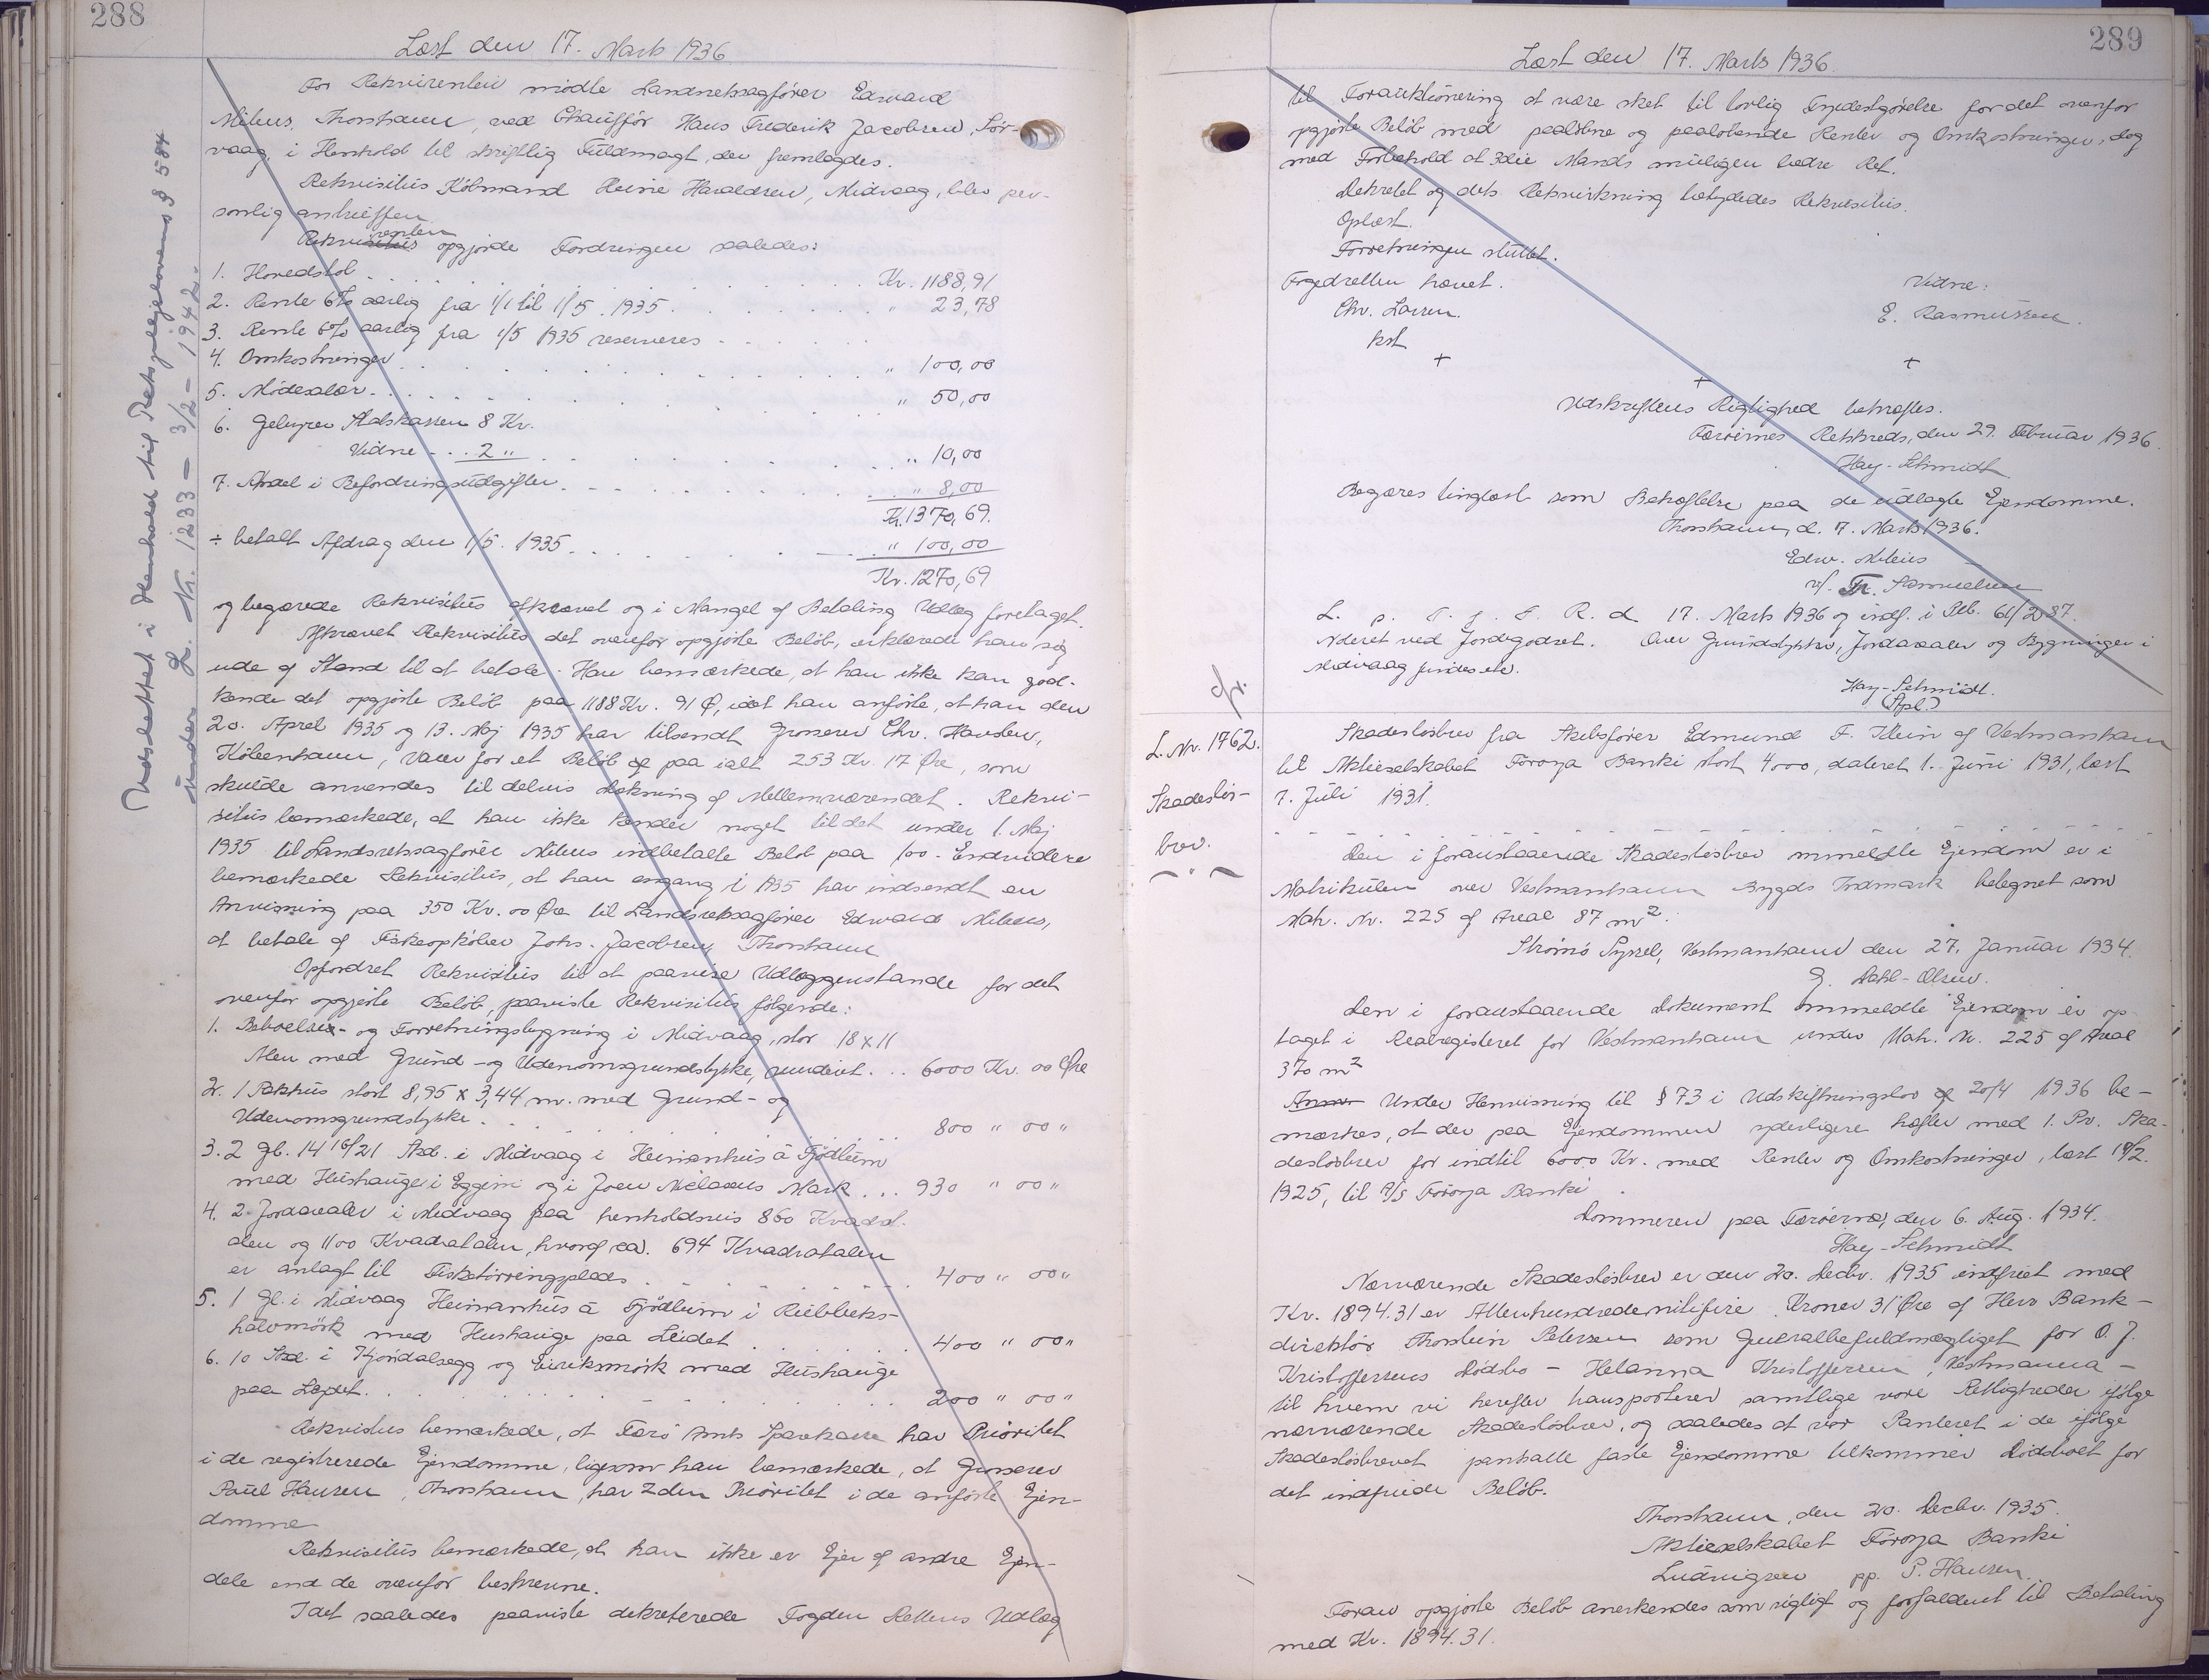 288
Læst den 17. Marts 1936
For Rekvirenten mødte Landsretssagfører Edward
Mitens, Thorshavn, ved Chauffør Hans Frederik Jacobsen, Sør-
vaag, i Henhold til skriftlig Fuldmagt, der fremlagdes.
Rekvisitus Købmand Heine Haraldsen, Midvaag, blev per-
sonlig antruffen.
Rekvirenten opgjorde Fordringen saaledes:
1. Hovedstol . . . Kr. 1188,91
2. Rente 6% aarlig fra 1/1 til 1/5 1935 . . . " 23,78
3. Rente 6% aarlig fra 1/5 1935 reserveres . . .
4. Omkostninger . . . " 100,00
5. Mødesalær . . . " 50,00
6. Gebyrer Statskassen 8 Kr.
Vidne - . . 2 " . . . " 10,00
7. Andel i Befordringsudgifter . . . " 8,00
Kr. 1370,69.
÷ betalt Afdrag den 1/5 1935 . . . " 100,00
Kr. 1270,69
og begærede Rekvisitus afkrævet og i Mangel af Betaling Udlæg foretaget.
Afkrævet Rekvisitus det ovenfor opgjorte Beløb, erklærede han sig
ude af Stand til at betale. Han bemærkede, at han ikke kan god-
kende det opgjorte Beløb paa 1188 Kr. 91 Ø, idet han anførte, at han den
20. April 1935 og 13. Maj 1935 har tilsendt Grosserer Chr. Hansen,
København, Varer for et Beløb af paa ialt 253 Kr. 17 Øre, som
skulde anvendes til delvis Dækning af Mellemværendet. Rekvi-
situs bemærkede, at han ikke kender noget til det under 1. Maj
1935 til Landsretssagfører Mitens indbetalte Beløb paa 100 - Endvidere
bemærkede Rekvisitus, at han engang i 1935 har indsendt en
Anvisning paa 350 Kr. 00 Øre til Landsretssagfører Edward Mitens,
at betale af Fiskeopkøber Johs. Jacobsen, Thorshavn
Opfordret Rekvisitus til at paavise Udlægsgenstande for det
ovenfor opgjorte Beløb, paaviste Rekvisitus følgende:
1. Beboelses- og Forretningsbygning i Midvaag, stor 18 x 11
Alen med Grund- og Udenomsgrundstykke, vurderet . . 6000 Kr. 00 Øre
2. 1 Pakhus stort 8,95 x 3,44 m. med Grund- og
Udenomsgrundstykke . . . 800 " 00 "
3. 2 Gl. 14 16/21 Skd. i Midvaag i Heimanhus á Fjødlum
med Hushauge i Eggini og i Joen Nielasus Mark . . . 930 " 00 "
4. 2 Jordarealer i Midvaag paa henholdsvis 860 Kvadrat-
alen og 1100 Kvadratalen, hvoraf ca. 694 Kvadratalen
er anlagt til Fisketørringsplads . . . 400 " 00 "
5. 1 Gl. i Midvaag Heimanhus á Fjødlum i
med Hushauge paa Leidet . . . 400 " 00 "
6. 10 Skd. i og Eiriksmørk med Hushauge
paa . . . 200 " 00 "
Rekvisitus bemærkede, at Færø Amts Sparekasse har Prioritet
i de registrerede Ejendomme, ligesom han bemærkede, at Grosserer
Poul Hansen, Thorshavn, har 2den Prioritet i de anførte Ejen-
domme
Rekvisitus bemærkede, at han ikke er Ejer af andre Ejen-
dele end de ovenfor beskrevne.
Idet saaledes paaviste dekreterede Fogden Rettens Udlæg
Udslettet i Henhold til Retsplejelovens § 584
under L. Nr. 1233 – 3/2 – 1942.
289
Læst den 17. Marts 1936
til Forauktionering at være sket til lovlig Fyldestgørelse for det ovenfor
opgjorte Beløb med paaløbne og paaløbende Renter og Omkostninger, dog
med Forbehold af 3die Mands muligen bedre Ret.
Dekretet og dets Retsvirkning betydedes Rekvisitus.
Oplæst.
Forretningen sluttet.
Fogedretten hævet.
Vidne:
Chr. Larsen.
E. Rasmussen.
kst
+ + +
Udskriftens Rigtighed bekræftes.
Færøernes Retskreds, den 29. Februar 1936.
Hay-Schmidt
Begæres tinglæst som Behæftelse paa de udlagte Ejendomme.
Thorshavn, d. 7. Marts 1936.
Edw. Mitens
v/. Fr. Samuelsen
L. p. T. f. F. R. d. 17. Marts 1936 og indf. i Ptb. 61/287.
Noteret ved Jordegodset. Over Grundstykker, Jordarealer og Bygninger i
Midvaag findes ete.
Hay-Schmidt.
(Spl.)
cfr.
L. Nr. 1762.
Skadesløs-
brev.
Skadesløsbrev fra Skibsfører Edmund F. Klein af Vestmanhavn
til Aktieselskabet Føroya Banki stort 4000, dateret 1. Juni 1931, læst
7. Juli 1931.
Den i foranstaaende Skadesløsbrev ommeldte Ejendom er i
Matrikulen over Vestmanhavn Bygds Indmark betegnet som
Matr. Nr. 225 af Areal 87 m².
Strømø Syssel, Vestmanhavn den 27. Januar 1934.
J. Dahl-Olsen.
Den i foranstaaende Dokument ommeldte Ejendom er op-
taget i Realregisteret for Vestmanhavn under Matr. Nr. 225 af Areal
370 m²
Anm Under Henvisning til § 73 i Udskiftningslov af 20/4 1936 be-
mærkes, at der paa Ejendommen yderligere hæfter med 1. Pr. Ska-
desløsbrev for indtil 6000 Kr. med Renter og Omkostninger, læst 18/2.
1925, til A/S Føroya Banki.
Dommeren paa Færøerne, den 6. Aug. 1934.
Hay-Schmidt
Nærværende Skadesløsbrev er den 20. Decbr. 1935 indfriet med
Kr. 1894.31 er Attenhundredenitifire Kroner 31 Øre af Herr Bank-
direktør Thorstein Petersen som Generalbefuldmægtiget for O. J.
Kristoffersens Dødsbo – Helanna Kristoffersen, Vestmanna –
til hvem vi herefter transporterer samtlige vore Rettigheder ifølge
nærværende Skadesløsbrev, og saaledes at vor Panteret i de ifølge
Skadesløsbrevet panthatte faste Ejendomme tilkommer Dødsboet for
det indfriede Beløb.
Thorshavn, den 20. Decbr. 1935.
Aktieselskabet Føroya Banki
Ludvigsen pp. P. Hansen.
Foran opgjorte Beløb anerkendes som rigtigt og forfaldent til Betaling
med Kr. 1894.31.